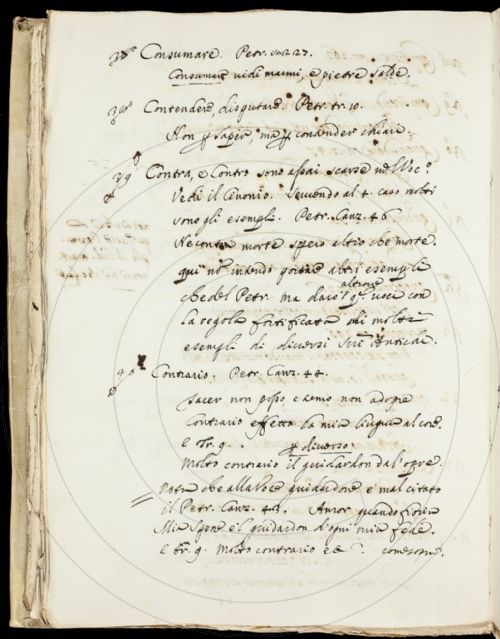 38º Consumare. Petr. son. 27.
Consumar vidi marmi, e pietre salde.
Contendere, disputare. Petr. tr. 10.
Non per saper, ma per contender chiari.
39 Contra, e Contro sono assai scarse nel Voc.º
Vedi il Cinonio. Servendo al 4. caso molti
sono gli esempli. Petr. Canz. 46
Ne contra morte spero altro che morte.
qui nō intendo portare altri esempli
che del Petr. ma darò altrove q.e voci con
la regola fortificata di molti
esempli di diversi Antichi.
40 Contrario. Petr. Canz. 44.
tacer non posso e temo non adopre
Contrario effetto la mia lingua al core.
e Tr. 9. per diverso.
Molto contrario il guidardon dal'opre.
nota che alla voce guidardone è mal citato
il Petr. Canz. 48. Amor quando fioria
Mia Spene e'l guidardon d'ogni mia fede.
e tr. 9. Molto contrario e c. come sopra.